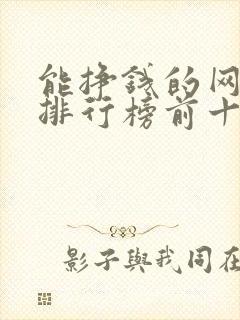 能挣钱的网
排行榜前十
影子與我同在